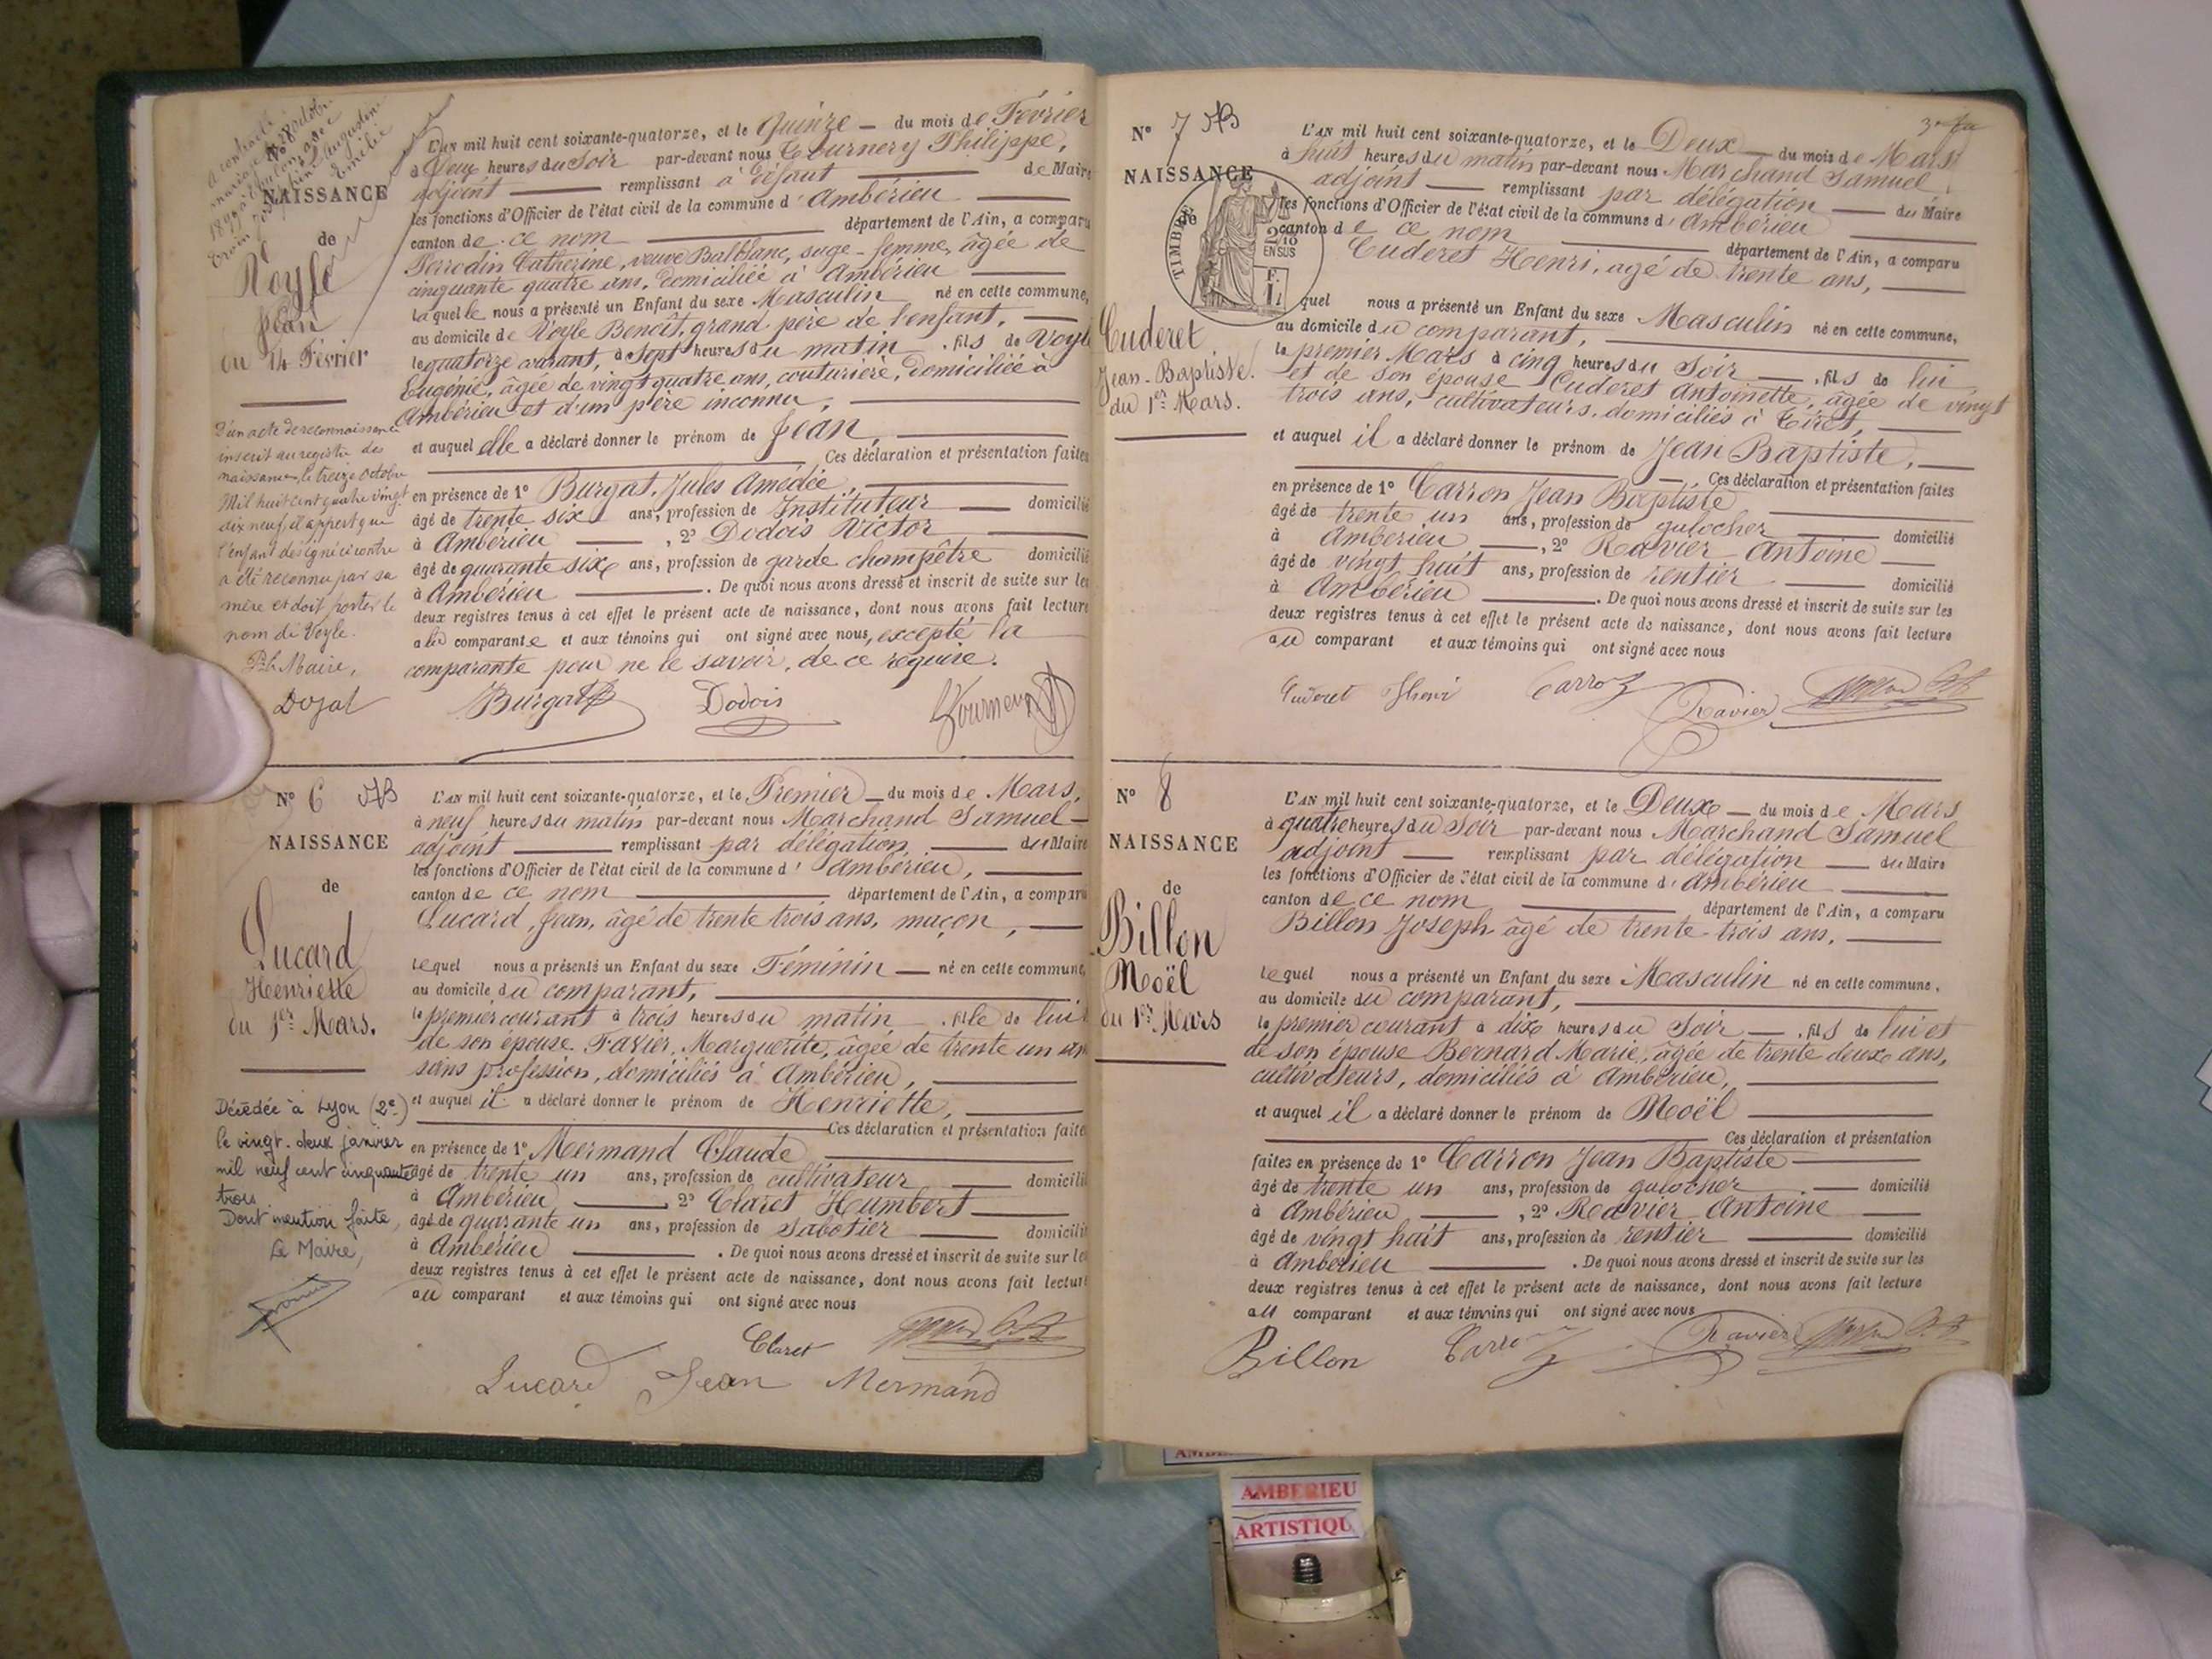 NAISSANCE
de
Voyle
Jean
du 14 Février
D'un acte de reconnaissance
inscrit au registre des
naissances, le treize octobre
Mil huit cent quatre vingt
dix neuf, il appert que
l'enfant désigné ci contre
a été reconnu par sa
mère et doit porter le
nom de Voyle.
Le Maire,
Dojat
L'AN mil huit cent soixante-quatorze, et le Quinze — du mois de Février
à Deux heures du Soir par-devant nous Tournery Philippe,
adjoint — remplissant à défaut — de Maire
les fonctions d'Officier de l'état civil de la commune d'Ambérieu —
canton de ce nom — département de l'Ain, a comparu
Perrodin Catherine, veuve Balblanc, sage-femme, âgée de
cinquante quatre ans, domiciliée à Ambérieu —
Laquelle nous a présenté un Enfant du sexe Masculin né en cette commune,
au domicile de Voyle Benoît, grand père de l'enfant, —
le quatorze courant, à Sept heures du matin, fils de Voyle
Eugénie, âgée de vingt quatre ans, couturière, domiciliée à
Ambérieu et d'un père inconnu, —
et auquel elle a déclaré donner le prénom de Jean, —
Ces déclaration et présentation faites
en présence de 1° Burgat, Jules Amédée, —
âgé de trente six ans, profession de Instituteur — domicilié
à Ambérieu —, 2° Dodois Victor —
âgé de quarante six ans, profession de garde champêtre domicilié
à Ambérieu —. De quoi nous avons dressé et inscrit de suite sur les
deux registres tenus à cet effet le présent acte de naissance, dont nous avons fait lecture
a la comparante et aux témoins qui ont signé avec nous, excepté la
comparante pour ne le savoir, de ce requise.
Burgat Dodois Tournery
N° 6
NAISSANCE
de
Lucard
Henriette
du 1er Mars.
Décédée à Lyon (2e)
le vingt-deux janvier
mil neuf cent cinquante
trois
Dont mention faite,
Le Maire,
L'AN mil huit cent soixante-quatorze, et le Premier — du mois de Mars,
à neuf heures du matin par-devant nous Marchand Samuel —
adjoint — remplissant par délégation — du Maire
les fonctions d'Officier de l'état civil de la commune d'Ambérieu, —
canton de ce nom — département de l'Ain, a comparu
Lucard, Jean, âgé de trente trois ans, maçon, —
Lequel nous a présenté un Enfant du sexe Féminin — né en cette commune,
au domicile du comparant, —
le premier courant à trois heures du matin, fille de lui
de son épouse Favier, Marguerite, âgée de trente un an
sans profession, domiciliés à Ambérieu, —
et auquel il a déclaré donner le prénom de Henriette, —
Ces déclaration et présentation faite
en présence de 1° Mermand Claude —
âgé de trente un ans, profession de cultivateur — domicilié
à Ambérieu —, 2° Claret Humbert —
âgé de quarante un ans, profession de Sabotier — domicilié
à Ambérieu —. De quoi nous avons dressé et inscrit de suite sur les
deux registres tenus à cet effet le présent acte de naissance, dont nous avons fait lecture
au comparant et aux témoins qui ont signé avec nous
Claret
Lucard Jean Mermand
N° 7
NAISSANCE
de
TIMBRE
2/10
EN SUS
Cuderet
Jean-Baptiste.
du 1er Mars.
L'AN mil huit cent soixante-quatorze, et le Deux — du mois de Mars
à huit heures du matin par-devant nous Marchand Samuel
adjoint — remplissant par délégation — du Maire
les fonctions d'Officier de l'état civil de la commune d'Ambérieu —
canton de ce nom — département de l'Ain, a comparu
Cuderet Henri, âgé de trente ans, —
quel nous a présenté un Enfant du sexe Masculin né en cette commune,
au domicile du comparant, —
le premier Mars à cinq heures du Soir —, fils de lui
et de son épouse Cuderet Antoinette, âgée de vingt
trois ans, cultivateurs, domiciliés à Tiret, —
et auquel il a déclaré donner le prénom de Jean Baptiste, —
Ces déclaration et présentation faites
en présence de 1° Carron Jean Baptiste
âgé de trente un ans, profession de galocher — domicilié
à Ambérieu —, 2° Ravier Antoine —
âgé de vingt huit ans, profession de rentier — domicilié
à Ambérieu —. De quoi nous avons dressé et inscrit de suite sur les
deux registres tenus à cet effet le présent acte de naissance, dont nous avons fait lecture
au comparant et aux témoins qui ont signé avec nous
Cuderet Henri Carron Ravier
N° 8
NAISSANCE
de
Billon
Noël
du 1er Mars
L'AN mil huit cent soixante-quatorze, et le Deux — du mois de Mars
à quatre heures du Soir par-devant nous Marchand Samuel
adjoint — remplissant par délégation — du Maire
les fonctions d'Officier de l'état civil de la commune d'Ambérieu —
canton de ce nom — département de l'Ain, a comparu
Billon Joseph âgé de trente-trois ans, —
Lequel nous a présenté un Enfant du sexe Masculin né en cette commune,
au domicile du comparant, —
le premier courant à dix heures du Soir —, fils de lui et
de son épouse Bernard Marie, âgée de trente deux ans,
cultivateurs, domiciliés à Ambérieu, —
et auquel il a déclaré donner le prénom de Noël —
Ces déclaration et présentation
faites en présence de 1° Carron Jean Baptiste —
âgé de trente un ans, profession de galocher — domicilié
à Ambérieu —, 2° Ravier Antoine —
âgé de vingt huit ans, profession de rentier — domicilié
à Ambérieu —. De quoi nous avons dressé et inscrit de suite sur les
deux registres tenus à cet effet le présent acte de naissance, dont nous avons fait lecture
au comparant et aux témoins qui ont signé avec nous
Billon Carron Ravier
AMBERIEU
ARTISTIQU